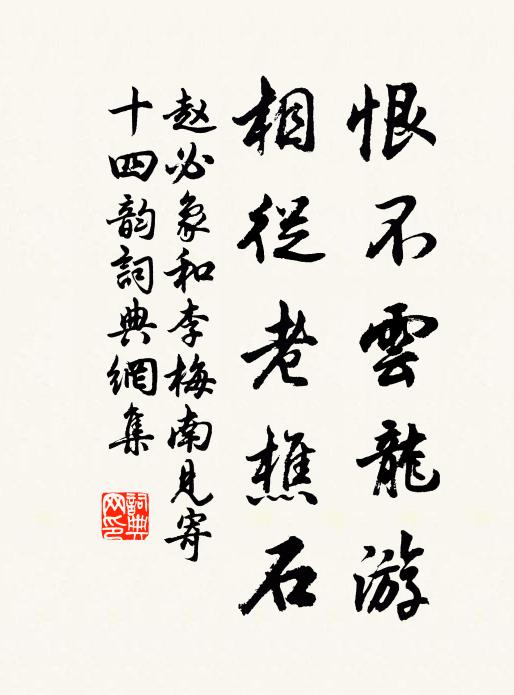 恨不雲龍游
相從老樵石
赵必象和李梅南見寄
十四韵詞典網集
詞典网印